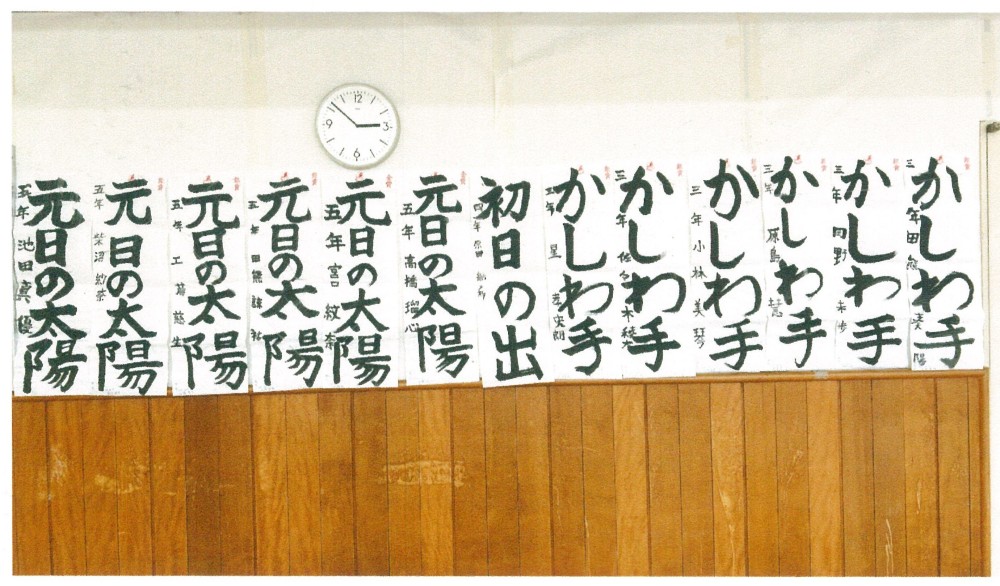 12
3
6
9
かしわ手
三年 田熊
かしわ手
三年 向野 未歩
かしわ手
三年 原島 慧
かしわ手
三年 小林 美琴
かしわ手
三年 佐々木
かしわ手
三年 星
初日の出
四年
元日の太陽
五年 高橋 瑠心
元日の太陽
五年 宮 紋
元日の太陽
五年 田熊 諒
元日の太陽
五年 工藤 慈生
元日の太陽
五年 柴沼 紗菜
元日の太陽
五年 池田 真優